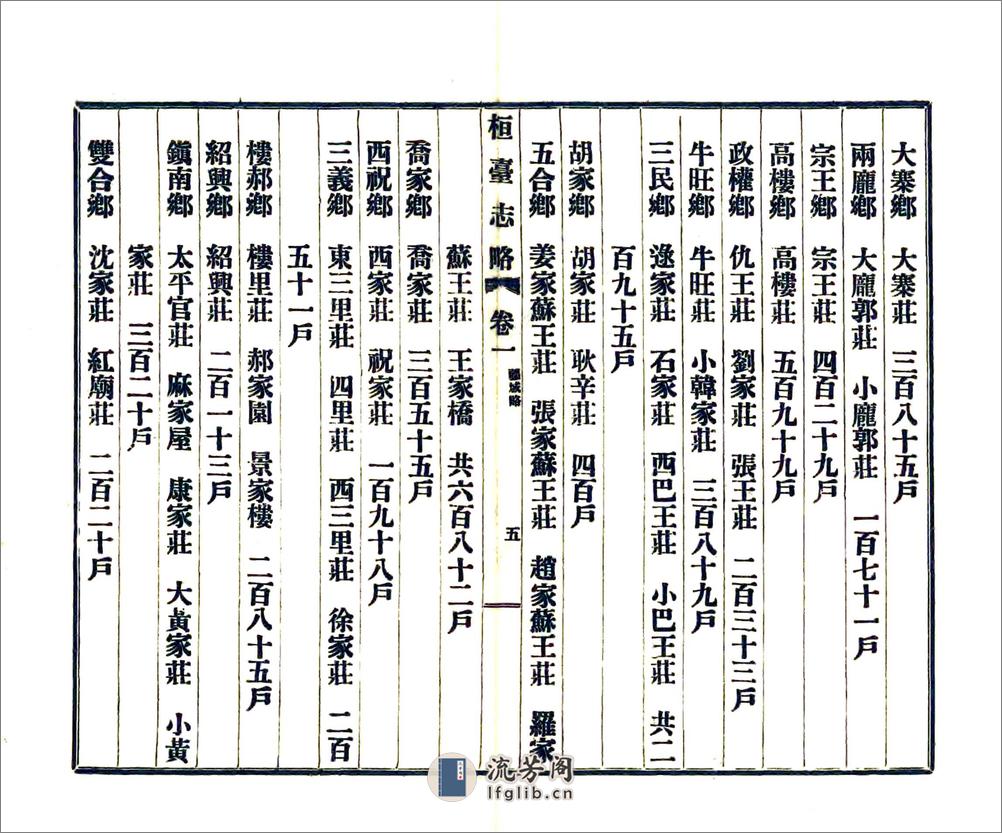 大寨鄉 大寨莊 三百八十五戶
兩龐鄉 大龐郭莊 小龐郭莊 一百七十一戶
宗王鄉 宗王莊 四百二十九戶
高樓鄉 高樓莊 五百九十九戶
政權鄉 仇王莊 劉家莊 張王莊 二百三十三戶
牛旺鄉 牛旺莊 小韓家莊 三百八十九戶
三民鄉 逯家莊 石家莊 西巴王莊 小巴王莊 共二
百九十五戶
胡家鄉 胡家莊 耿辛莊 四百戶
五合鄉 姜家蘇王莊 張家蘇王莊 趙家蘇王莊 羅家
桓臺志略 卷一 疆域略 五
蘇王莊 王家橋 共六百八十二戶
喬家鄉 喬家莊 三百五十五戶
西祝鄉 西家莊 祝家莊 一百九十八戶
三義鄉 東三里莊 四里莊 西三里莊 徐家莊 二百
五十一戶
樓郝鄉 樓里莊 郝家園 景家樓 二百八十五戶
紹興鄉 紹興莊 二百一十三戶
鎭南鄉 太平官莊 麻家屋 康家莊 大黃家莊 小黃
家莊 三百二十戶
雙合鄉 沈家莊 紅廟莊 二百二十戶
流芳阁
lfglib.cn